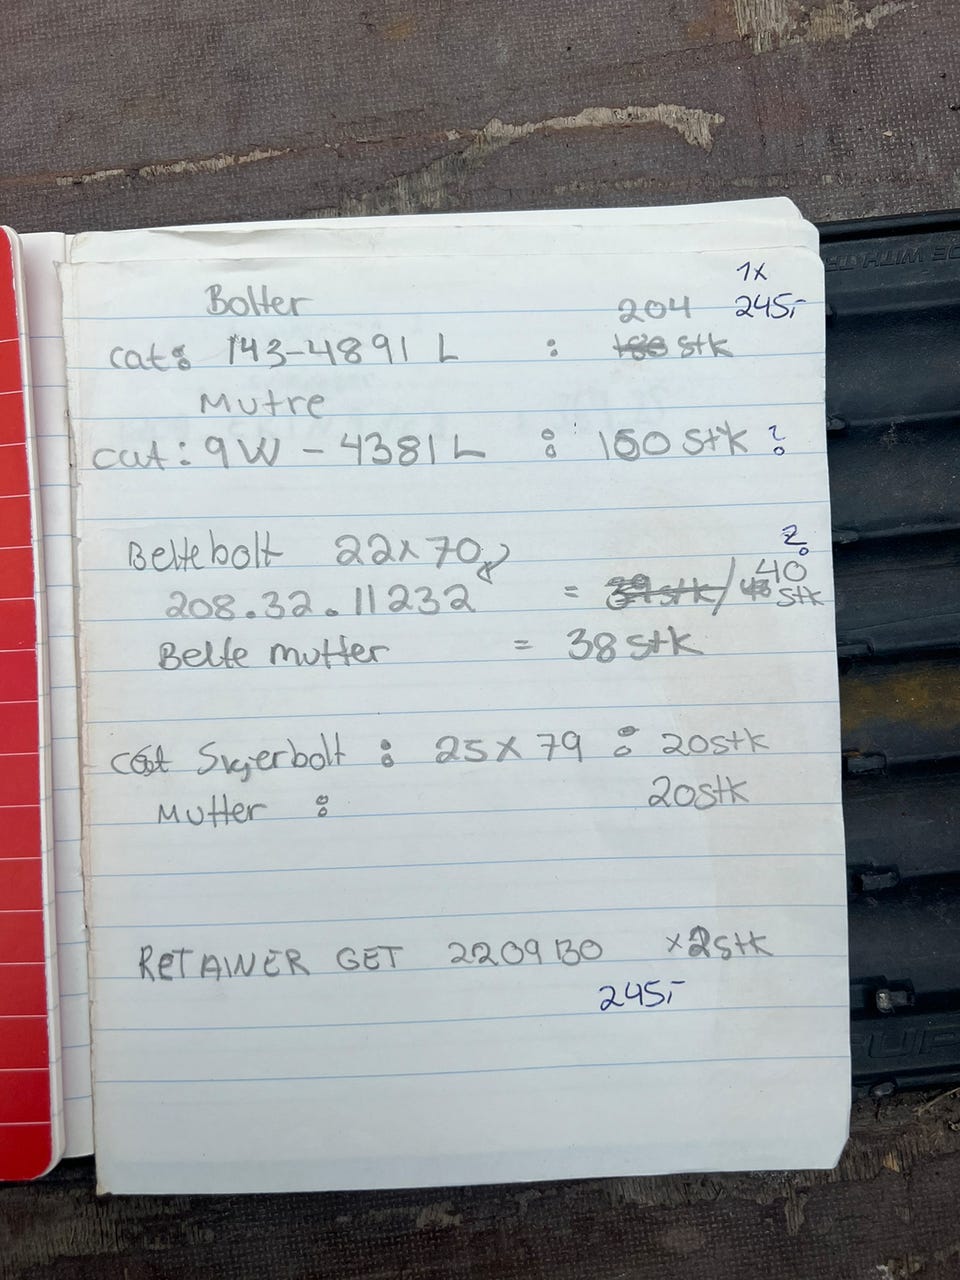 1x
Bolter 204 245,-
cat: 143-4891 L : stk
Mutre
cat: 9W - 4381 L : 150 stk ?
Beltebolt 22x70 ?
208.32.11232 = 39 stk / 40 stk
Belte mutter = 38 stk
cat Skjerbolt : 25 x 79 : 20 stk
Mutter : 20 stk
RETAINER GET 2209130 x 2 stk
245,-